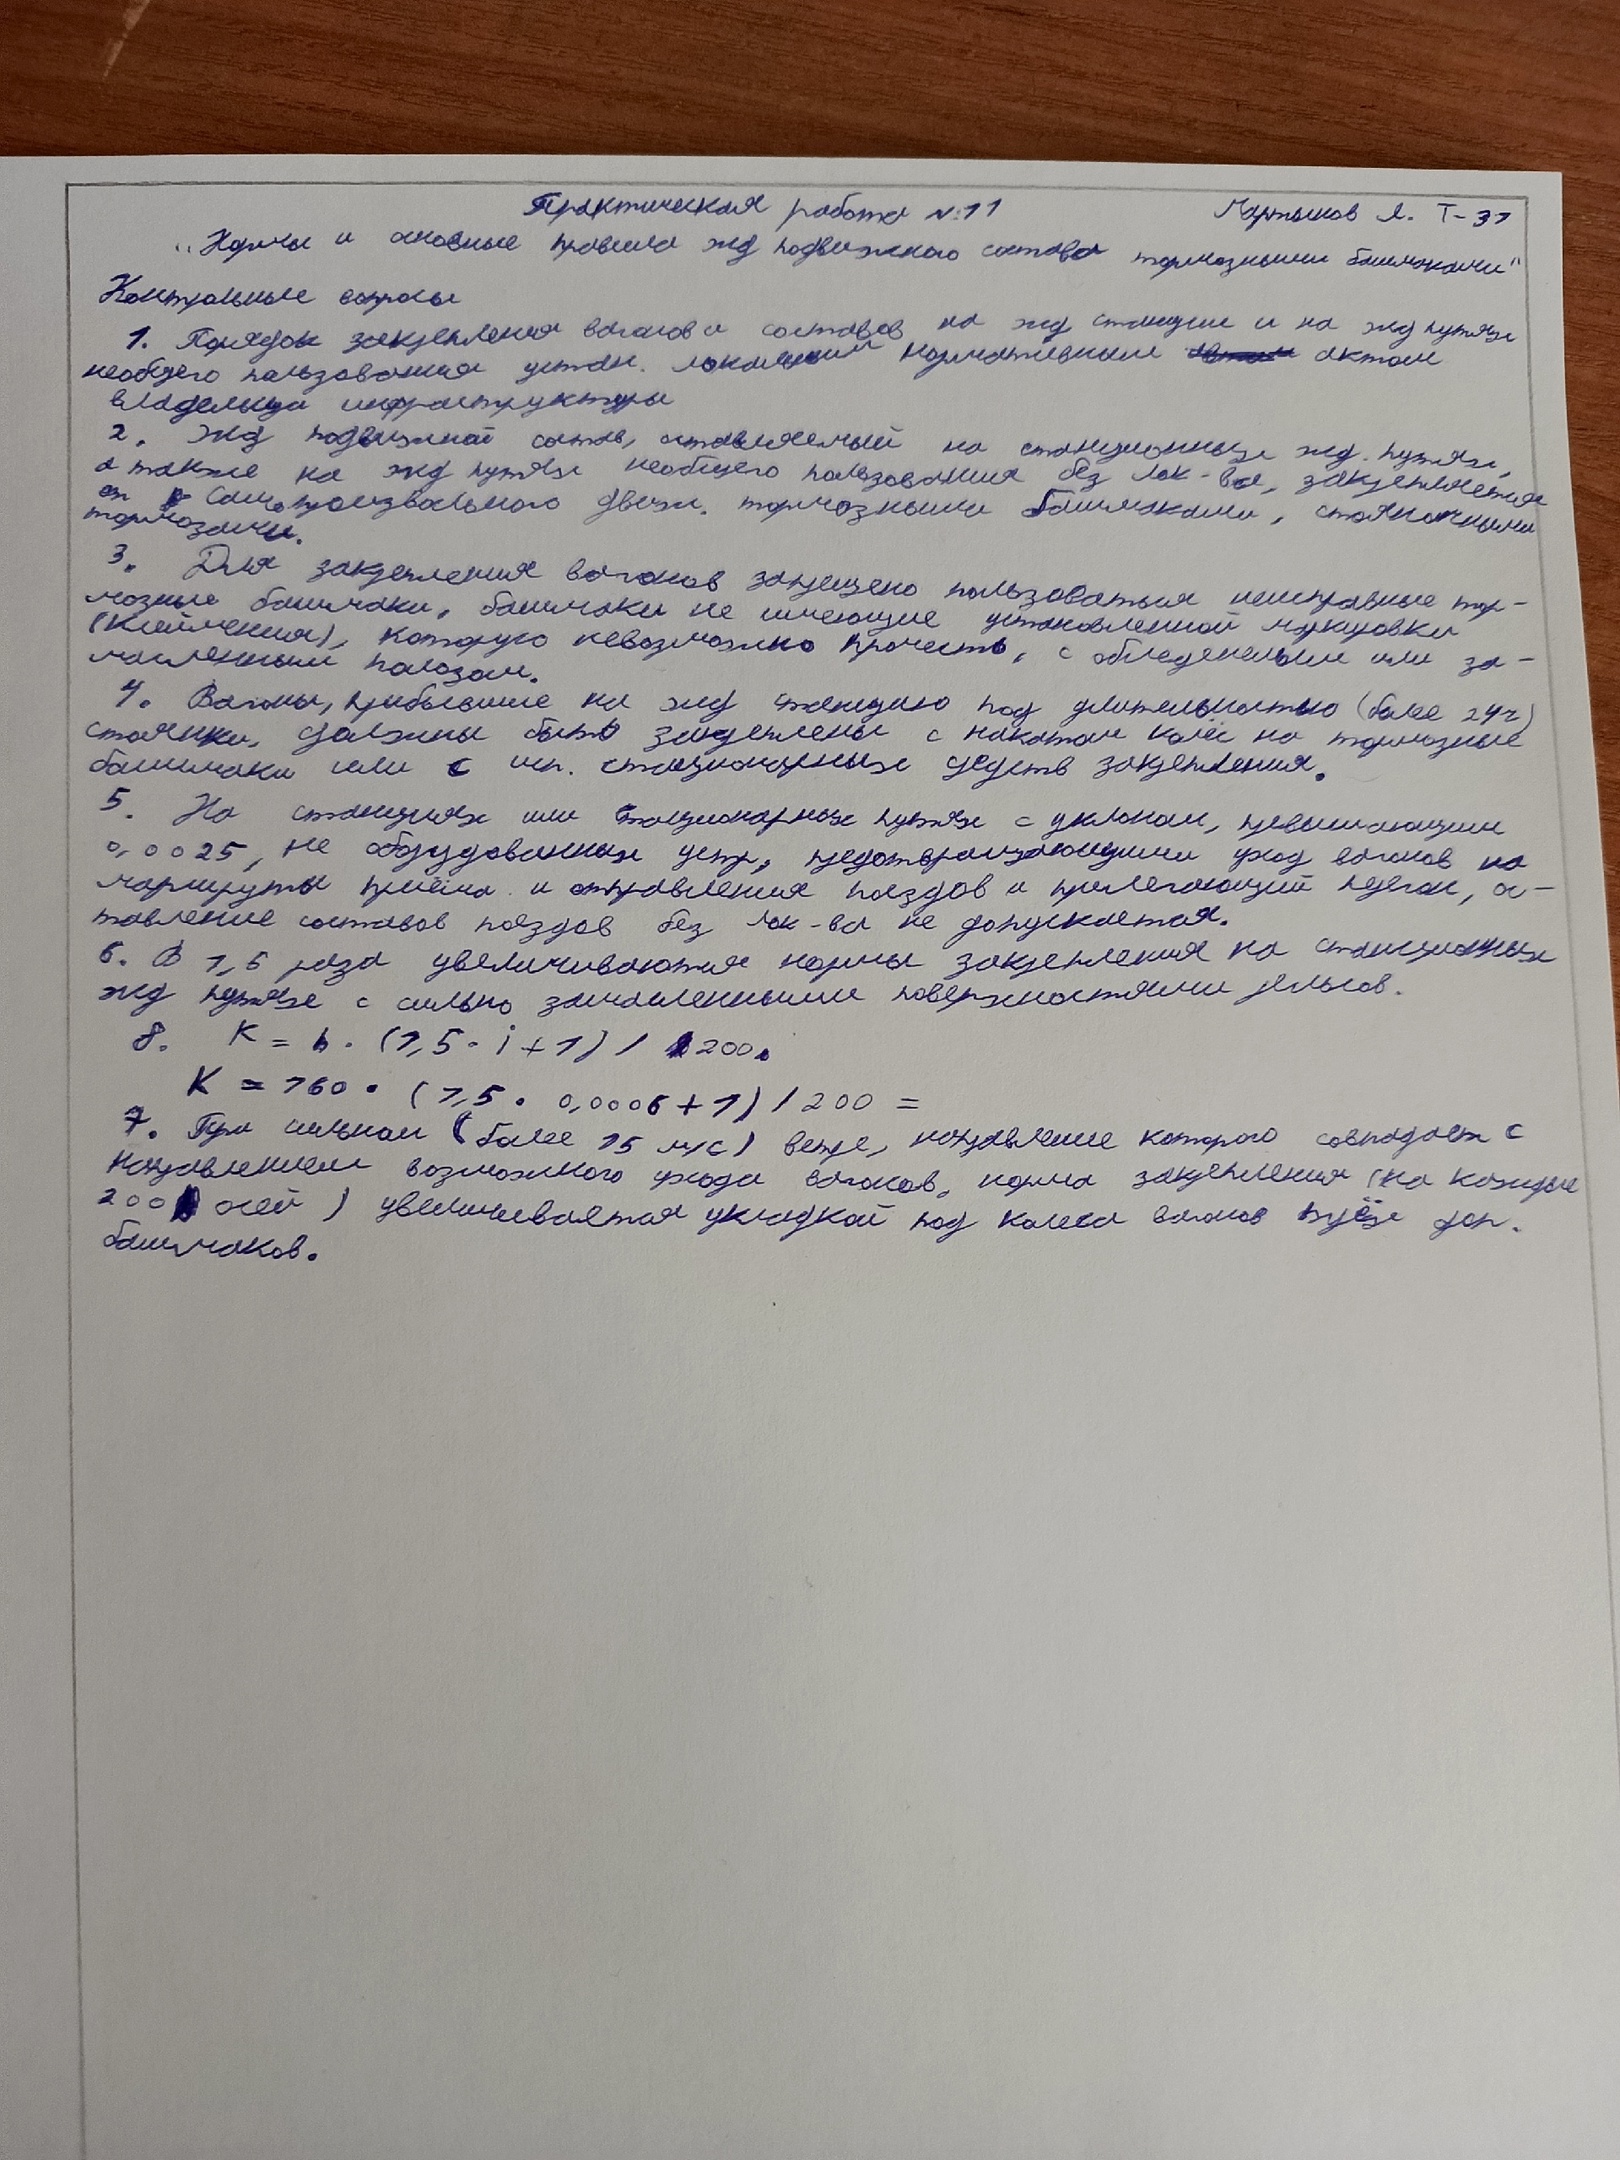 Практическая работа №11
Мартынов Я. Т-31
"Нормы и основные правила жд подвижного состава тормозными башмаками"
Контрольные вопросы
1. Порядок закрепления вагонов и составов на жд станции и на жд путях
необщего пользования устан. локальным нормативным актом
владельца инфраструктуры
2. Жд подвижной состав, оставляемый на станционных жд. путях,
а также на жд путях необщего пользования без лок-ва, закрепляется
от самопроизвольного движ. тормозными башмаками, стояночными
тормозами.
3. Для закрепления вагонов запрещено пользоваться неисправные тор-
мозные башмаки, башмаки не имеющие установленной маркировки
(клеймения), которую невозможно прочесть, с обледенелым или за-
масленным полозом.
4. Вагоны, прибывшие на жд станцию под длительностью (более 24ч)
стоянки, должны быть закреплены с накатом колёс на тормозные
башмаки или с исп. стационарных средств закрепления.
5. На станциях или стационарных путях с уклоном, превышающим
0,0025, не оборудованных устр, предотвращающими уход вагонов на
маршруты приёма и отправления поездов и прилегающий перегон, ос-
тавление составов поездов без лок-ва не допускается.
6. В 1,5 раза увеличиваются нормы закрепления на станционных
жд путях с сильно замасленными поверхностями рельсов.
8. K = n · (1,5 · i + 1) / 200.
K = 160 · (1,5 · 0,0006 + 1) / 200 =
7. При сильном (более 15 м/с) ветре, направление которого совпадает с
направлением возможного ухода вагонов, норма закрепления (на каждые
200 осей) увеличивается укладкой под колеса вагонов трёх доп.
башмаков.